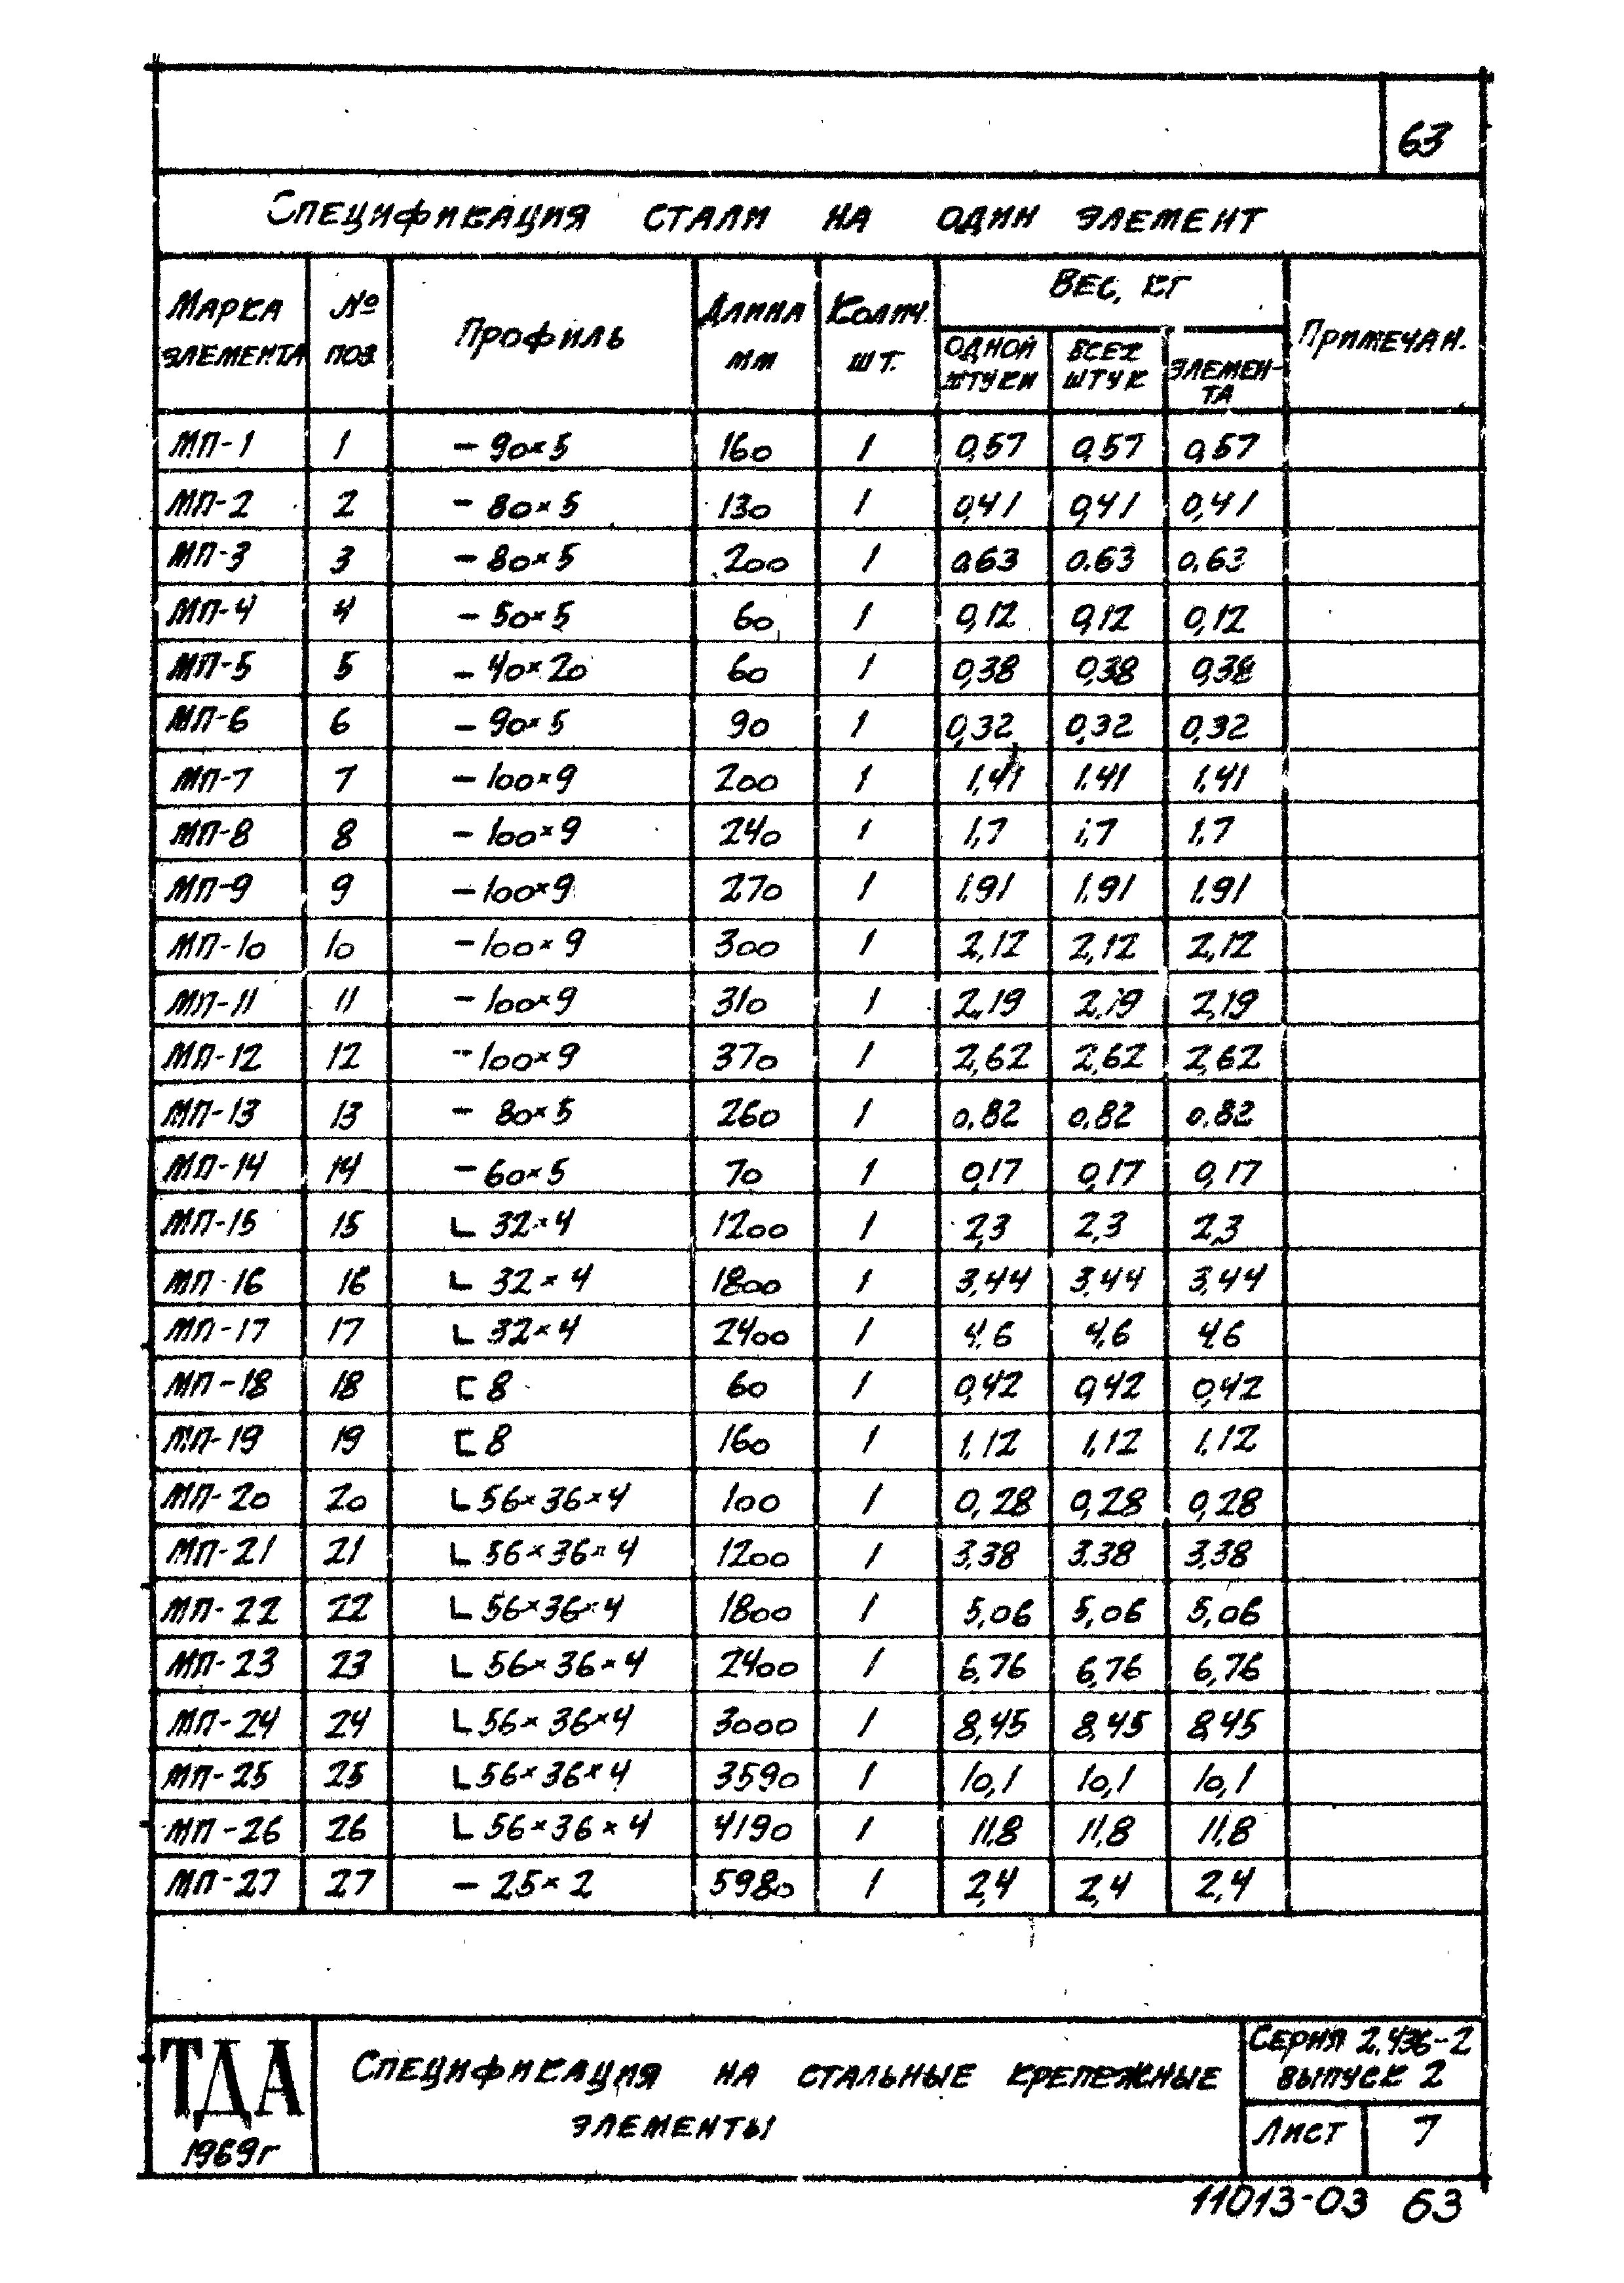 63
Спецификация стали на один элемент
Марка элемента № поз Профиль Длина мм Колич. шт. Вес, кг Примечан.
одной штуки всех штук элемен-та
МП-1 1 - 90×5 160 1 0,57 0,57 0,57
МП-2 2 - 80×5 130 1 0,41 0,41 0,41
МП-3 3 - 80×5 200 1 0.63 0.63 0,63
МП-4 4 - 50×5 60 1 0,12 0,12 0,12
МП-5 5 - 40×20 60 1 0,38 0,38 0,38
МП-6 6 - 90×5 90 1 0,32 0,32 0,32
МП-7 7 - 100×9 200 1 1,41 1.41 1,41
МП-8 8 - 100×9 240 1 1,7 1,7 1,7
МП-9 9 - 100×9 270 1 1,91 1,91 1,91
МП-10 10 - 100×9 300 1 2,12 2,12 2,12
МП-11 11 - 100×9 310 1 2,19 2,19 2,19
МП-12 12 - 100×9 370 1 2,62 2,62 2,62
МП-13 13 - 80×5 260 1 0,82 0,82 0,82
МП-14 14 - 60×5 70 1 0,17 0,17 0,17
МП-15 15 L 32×4 1200 1 2,3 2,3 2,3
МП-16 16 L 32×4 1800 1 3,44 3,44 3,44
МП-17 17 L 32×4 2400 1 4,6 4,6 4,6
МП-18 18 [ 8 60 1 0,42 0,42 0,42
МП-19 19 [ 8 160 1 1,12 1,12 1,12
МП-20 20 L 56×36×4 100 1 0,28 0,28 0,28
МП-21 21 L 56×36×4 1200 1 3,38 3.38 3,38
МП-22 22 L 56×36×4 1800 1 5,06 5,06 5,06
МП-23 23 L 56×36×4 2400 1 6,76 6,76 6,76
МП-24 24 L 56×36×4 3000 1 8,45 8,45 8,45
МП-25 25 L 56×36×4 3590 1 10,1 10,1 10,1
МП-26 26 L 56×36×4 4190 1 11,8 11,8 11,8
МП-27 27 - 25×2 5980 1 2,4 2,4 2,4
ТДА
1969г
Спецификация на стальные крепежные
элементы
Серия 2.436-2
выпуск 2
Лист 7
11013-03 63